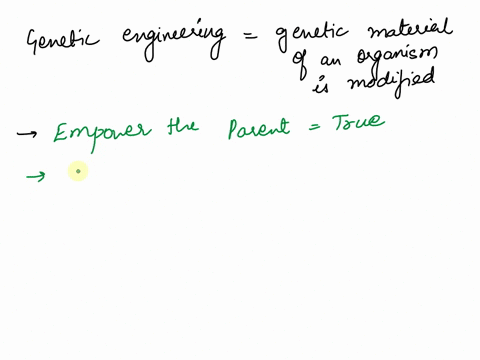 Genetic engineering = genetic material
of an organism
is modified
→ Empower the Parent = True
→